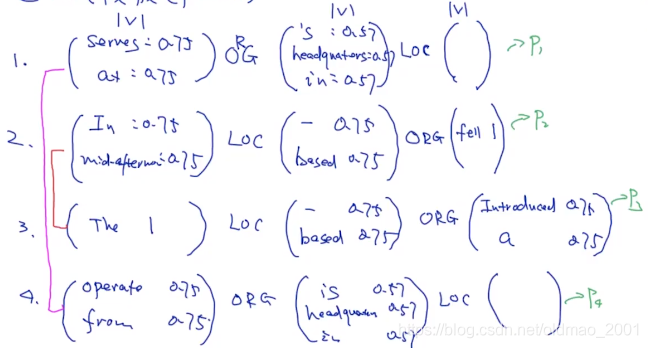 |V| |V| |V|
1. (serves : 0.75 at : 0.75) ORG (is : 0.57 headquaters : 0.57 in : 0.57) LOC ( ) → P1
2. (In : 0.75 mid-afternoi : 0.75) LOC (- 0.75 based 0.75) ORG (fell 1) → P2
3. (The 1) LOC (- 0.75 based 0.75) ORG (Introduced 0.75 a 0.75) → P3
4. (operate 0.75 from 0.75) ORG (is 0.57 headquaters 0.57 in 0.57) LOC ( ) → P4
https://blog.csdn.net/oldmao_2001